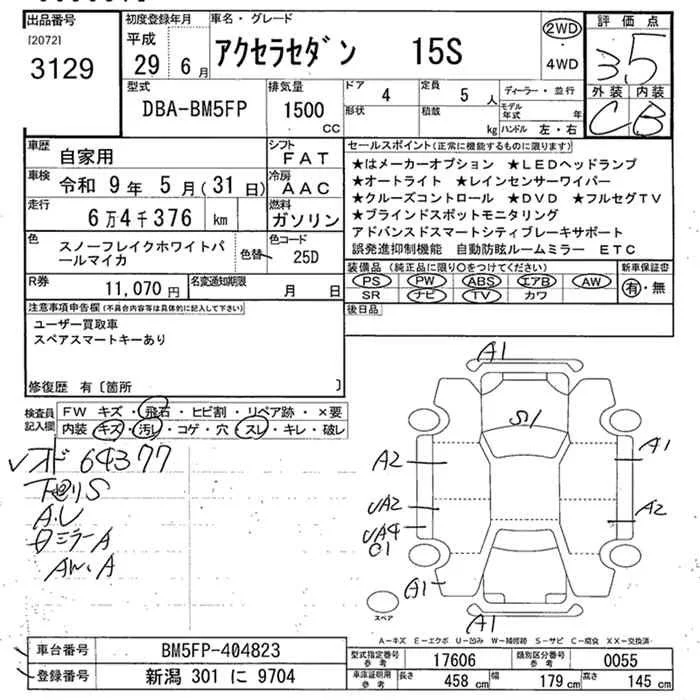 出品番号 初度登録年月 車名・グレード 評価点
[2072] 平成
3129 29年 6月 アクセラセダン 15S 2WD ・ 4WD 35
型式 排気量 ドア 定員 ディーラー・並行 外装 内装
DBA-BM5FP 1500 CC 4 5人 モデル年式 年 C B
形状 積載 kg ハンドル 左・右
車歴 自家用 シフト FAT
車検 令和 9年 5月(31日) 冷房 AAC
走行 6万4千376 km 燃料 ガソリン
色 スノーフレイクホワイトパールマイカ 色替 色コード 25D
R券 11,070円 名変通知期限 月 日
セールスポイント(正常に機能するものに限ります)
★はメーカーオプション ★LEDヘッドランプ
★オートライト ★レインセンサーワイパー
★クルーズコントロール ★DVD ★フルセグTV
★ブラインドスポットモニタリング
アドバンスドスマートシティブレーキサポート
誤発進抑制機能 自動防眩ルームミラー ETC
装備品(純正品に限り○をつけてください) 新車保証書
PS PW ABS エアB AW 有・無
SR ナビ TV カワ
後日品
注意事項申告欄(不具合内容等は具体的に記入して下さい)
ユーザー買取車
スペアスマートキーあり
修復歴 有〔箇所 〕
検査員記入欄 FW キズ・飛石・ヒビ割・リペア跡・×要
内装 キズ・汚レ・コゲ・穴・スレ・キレ・破レ
オド 64377
下回りS
A.U
ミラーA
AW.A
A1
S1
A2
A1
UA2
A2
UA4
C1
A1
A1
スペア
A-キズ E-エクボ U-凹み W-補修跡 S-サビ C-腐食 XX-交換済
車台番号 BM5FP-404823
登録番号 新潟 301 に 9704
型式指定番号 参考 17606 類別区分番号 参考 0055
車庫証明用 参考 長さ 458 cm 幅 179 cm 高さ 145 cm